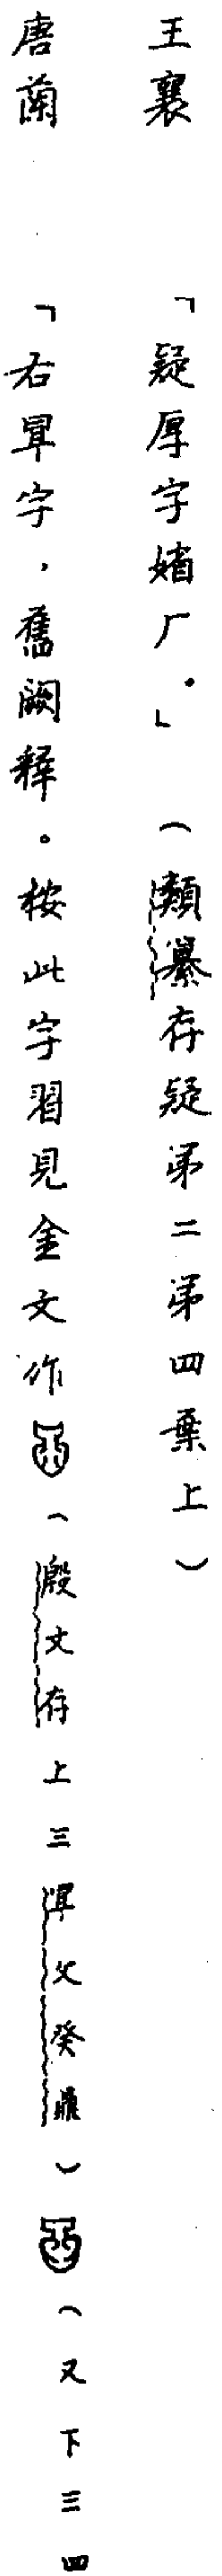 王襄　「疑厚字媎厂。」（類纂存疑第二第四葉上）
唐蘭　「右㫗字，舊闕釋。按此字習見金文作（殷文存上三㫗父癸鼎）（又下三四